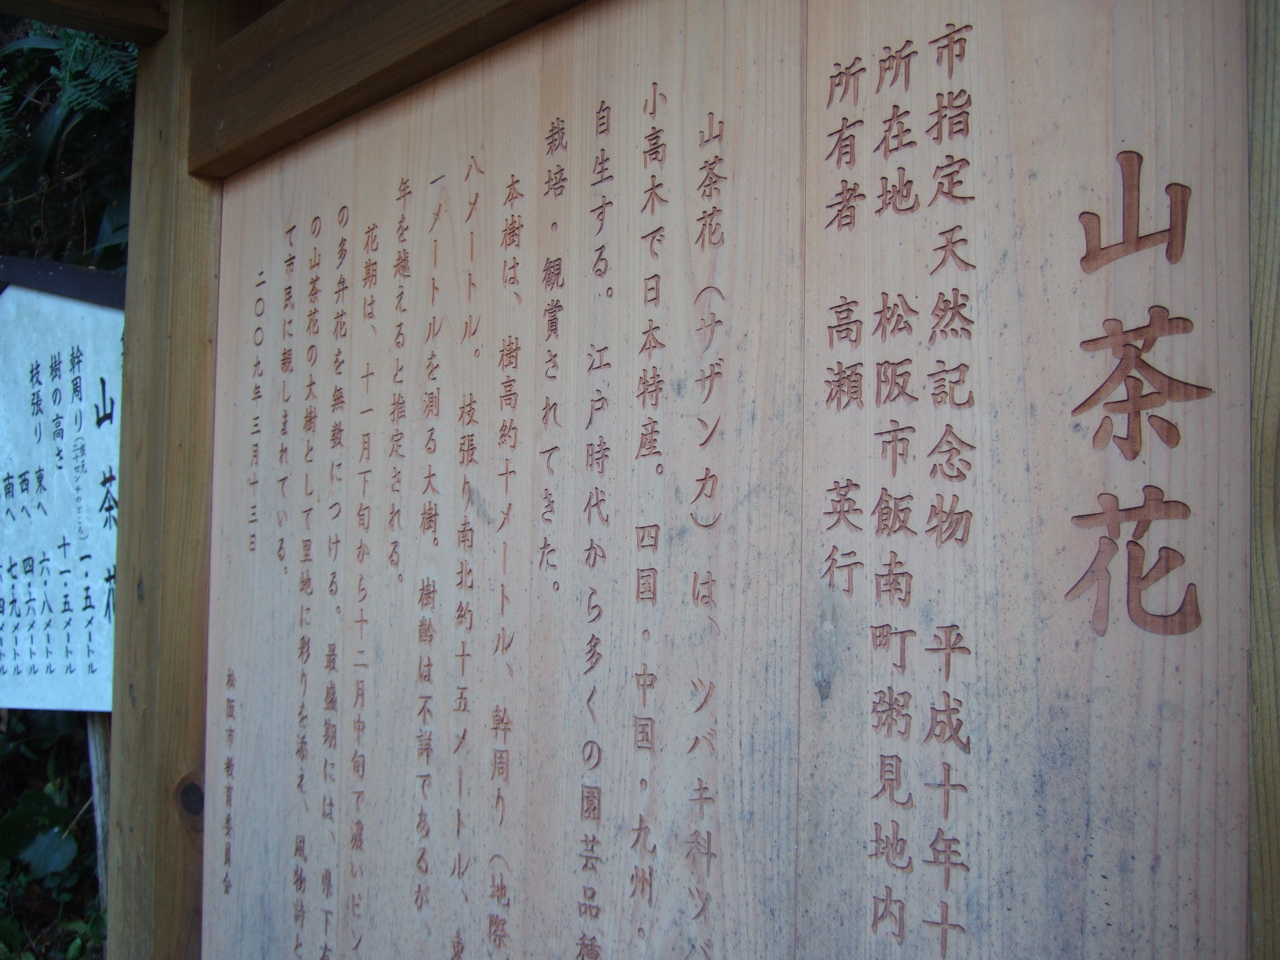 山茶花
市指定天然記念物 平成十年十
所在地 松阪市飯南町粥見地内
所有者 高瀬 英行
山茶花（サザンカ）は、ツバキ科ツバ
小高木で日本特産。四国・中国・九州・
自生する。江戸時代から多くの園芸品種
栽培・観賞されてきた。
本樹は、樹高約十メートル、幹周り（地際
八メートル。枝張り南北約十五メートル、東
一メートルを測る大樹。樹齢は不詳であるが、
年を越えると推定される。
花期は、十一月下旬から十二月中旬で濃いピン
の多弁花を無数につける。最盛期には、県下有
の山茶花の大樹として里地に彩りを添え、風物詩と
て市民に親しまれている。
二〇〇九年三月十三日
松阪市教育委員会
山茶花
幹周り 一・五メートル
樹の高さ 十一・五メートル
枝張り 東へ 六・八メートル
西へ 四・六メートル
南へ 七・九メートル